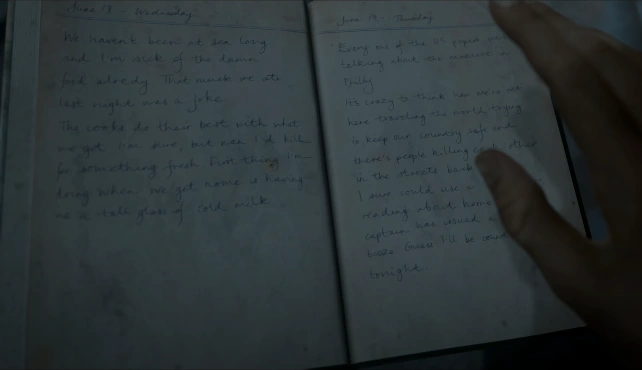 June 18 - Wednesday
We haven't been at sea long
and I'm sick of the damn
food already. That muck we ate
last night was a joke.
The cooks do their best with what
we got I'm sure, but man I'd kill
for something fresh. First thing I'm
doing when we get home is having
me a tall glass of cold milk
June 19 - Thursday
Every one of the US papers
talking about the massacre in
Philly
It's crazy to think how we're out
here travelling the world trying
to keep our country safe and
there's people killing each other
in the streets back
I sure could use a
reading about home
captain has issued a
booze. Guess I'll be
tonight.